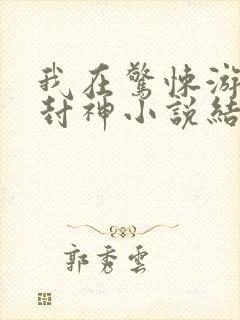 我在驚悚游
封神小說結
郭秀雲